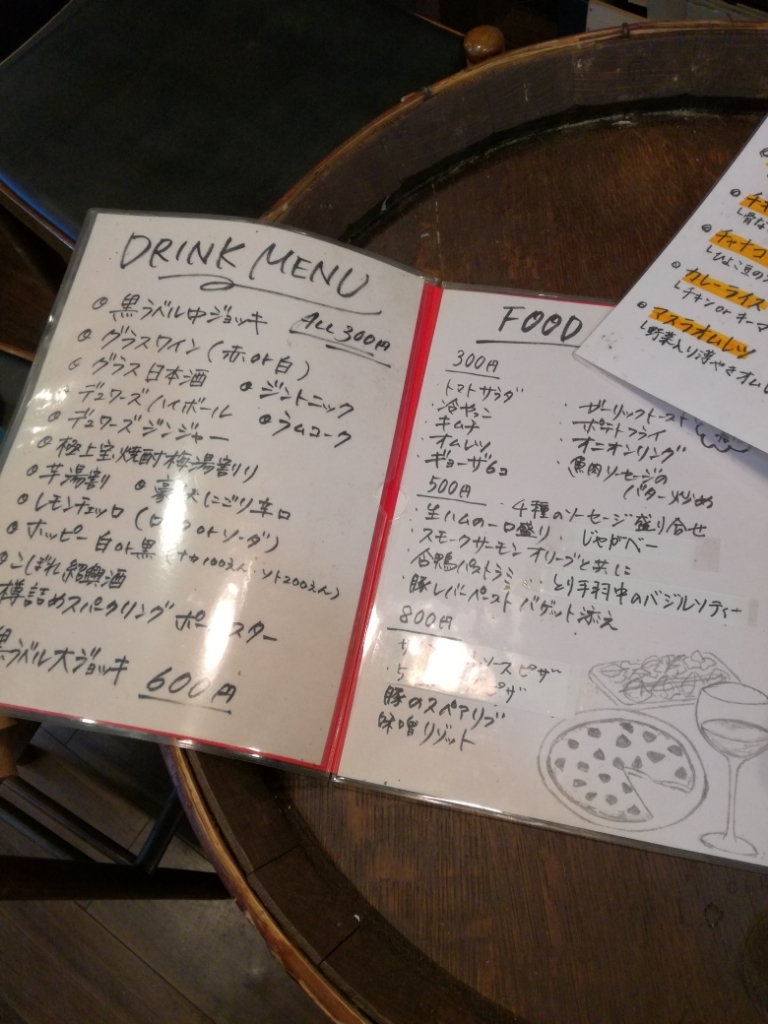 DRINK MENU
ALL 300円
黒ラベル中ジョッキ
グラスワイン(赤or白)
グラス日本酒
ジントニック
デュワーズハイボール
ラムコーク
デュワーズジンジャー
極上宝焼酎梅湯割り
芋湯割
にごり辛口
レモンチェッロ(ロックorソーダ)
ホッピー白or黒(ナカ100えん ソト200えん)
こぼれ紹興酒
樽詰めスパークリング ポールスター
黒ラベル大ジョッキ 600円
FOOD
300円
・トマトサラダ
・冷やっこ
・キムチ
・オムレツ
・ギョーザ6コ
・ガーリックトースト
・ポテトフライ
・オニオンリング
・魚肉ソーセージの
バター炒め
500円
・4種のソーセージ盛り合せ
・生ハムの一口盛り
・じゃがベー
・スモークサーモン オリーブと共に
・合鴨パストラミ
・とり手羽中のバジルソティー
・豚レバーペースト バゲット添え
800円
ソース ピザ
ピザ
豚のスペアリブ
味噌リゾット
チキ
└骨な
チャナコ
└ひよこ豆の
カレーライス
└チキンorキーマ
マスラオムレツ
└野菜入り薄やきオムレ